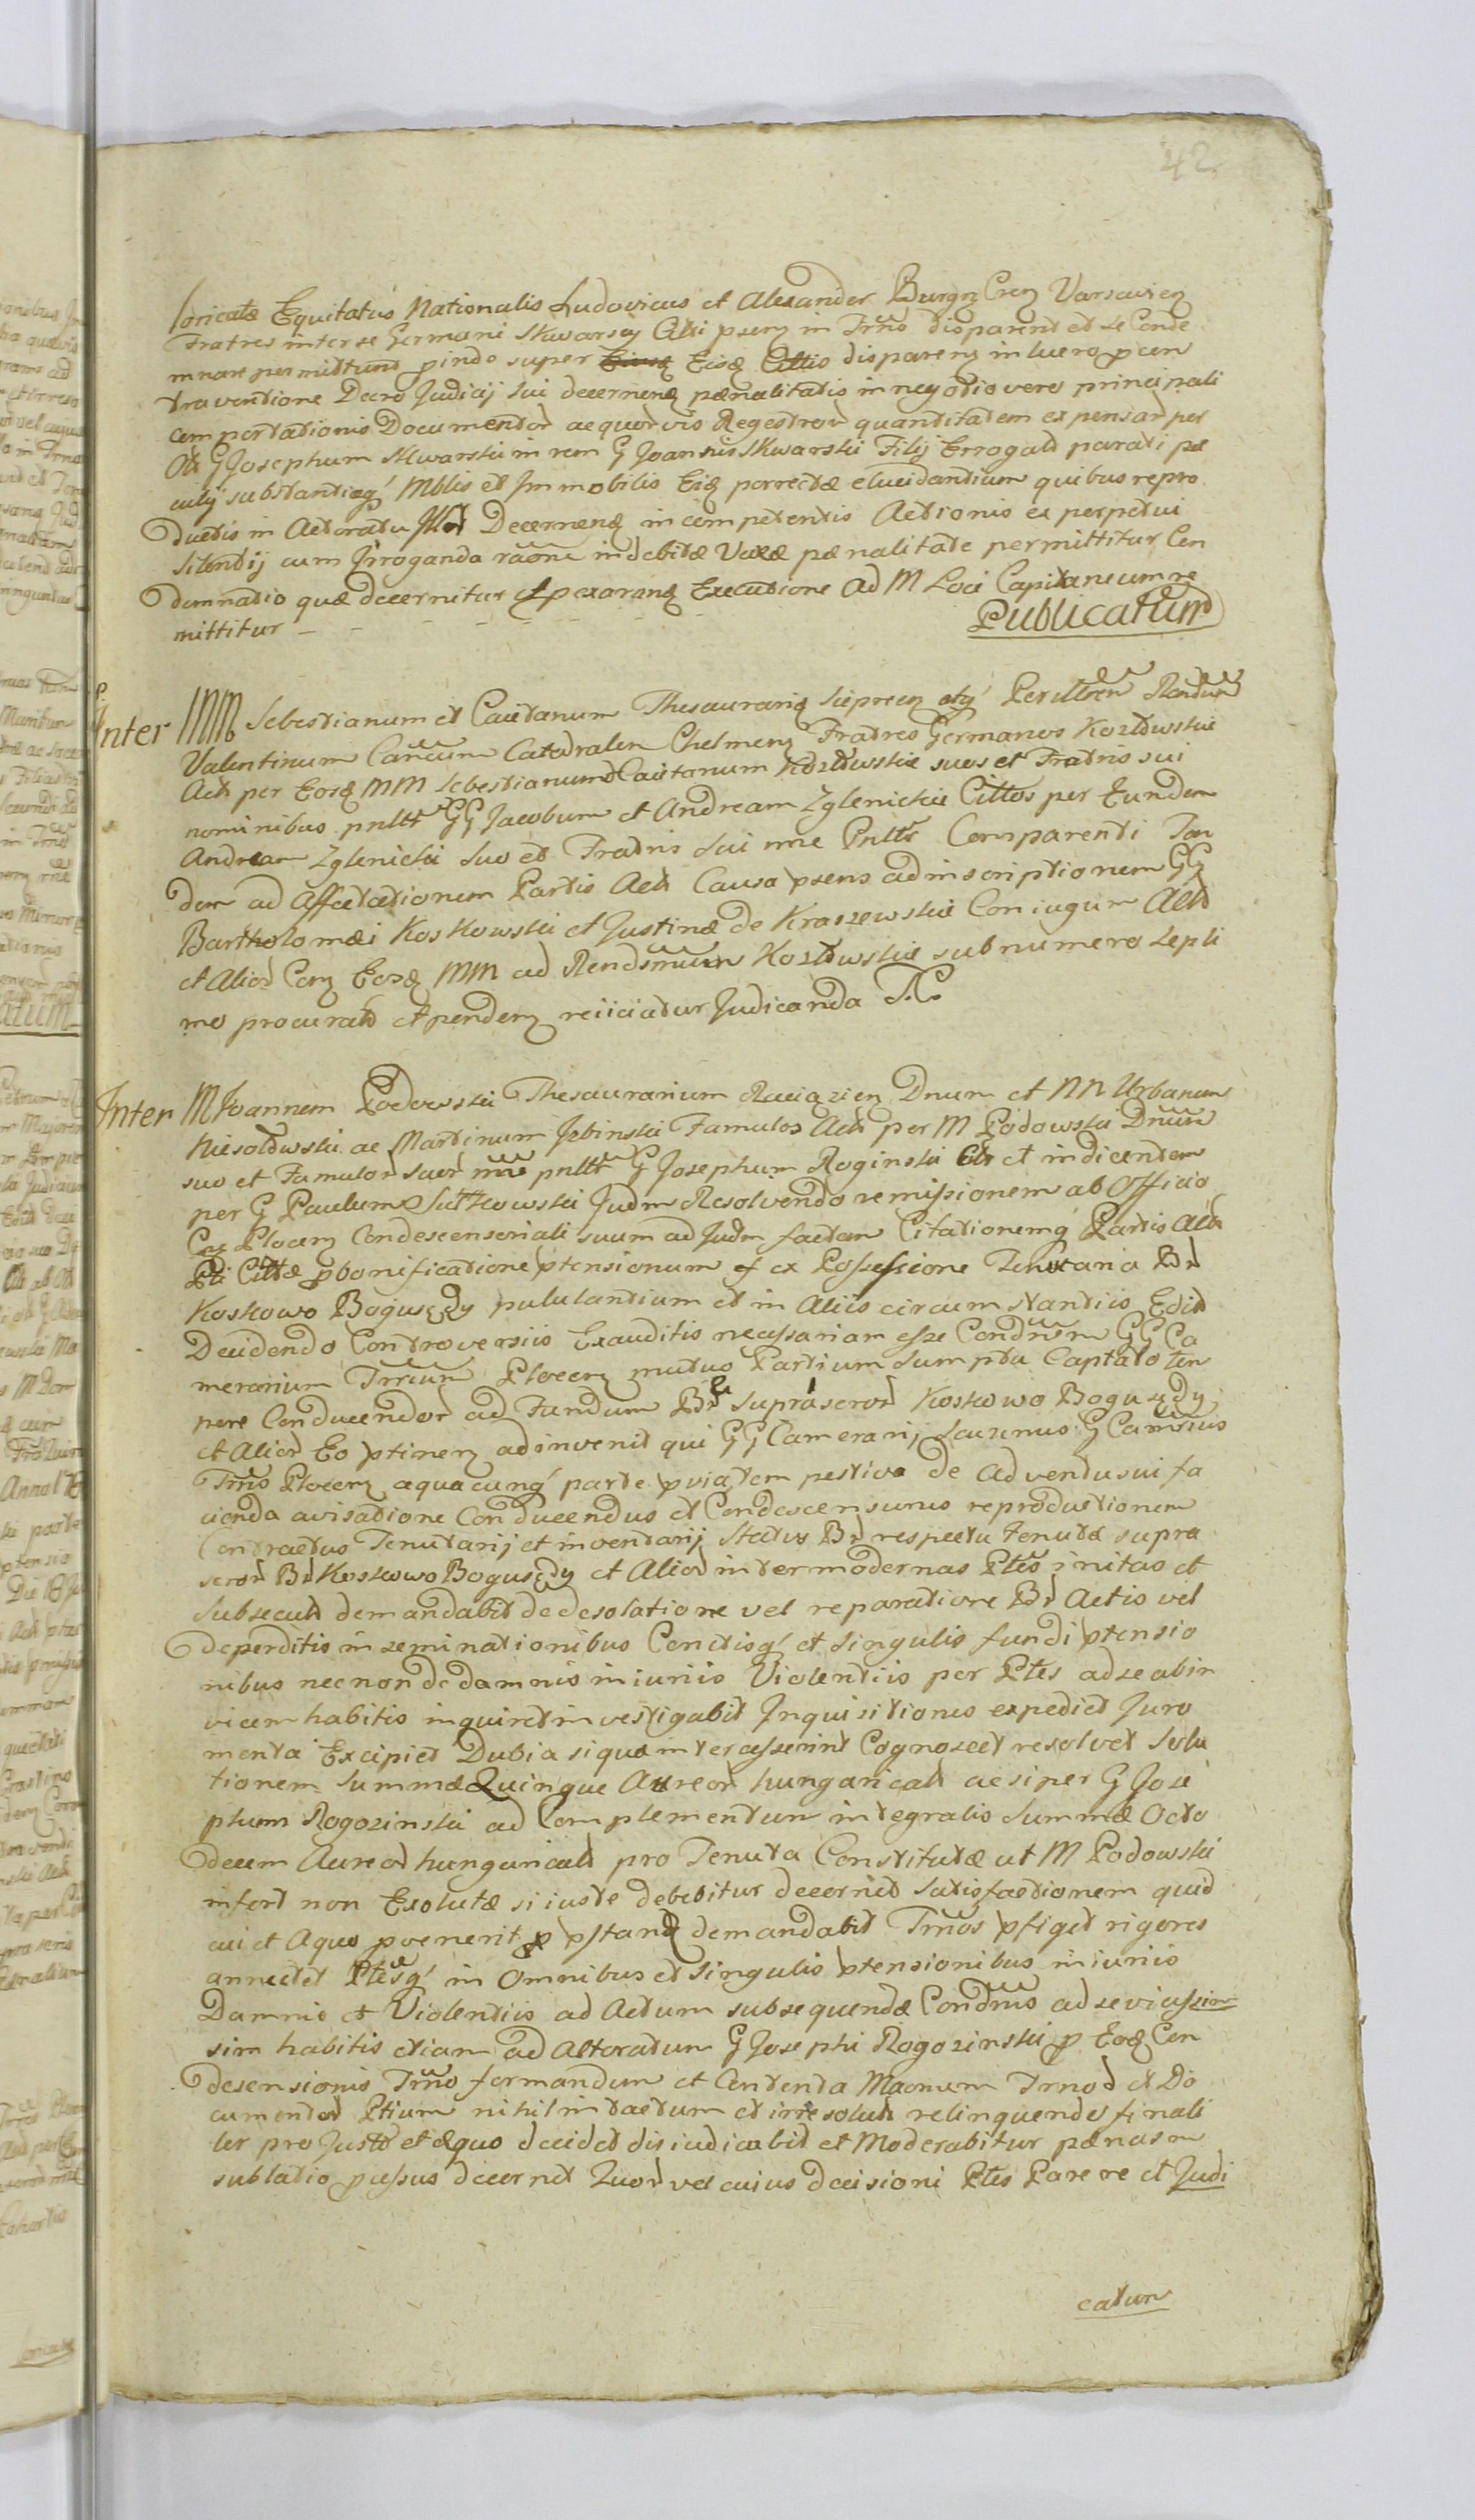 42
loricatæ Equitatus Nationalis Ludovicus et Alexander Burgr Cren Varsavien
Fratres inter se Germani Skwarscy Citti psen in Trno disparent et se Conde
mnare permittunt proindo super Eisq Cittis disparen in lucro p con
traventione Decro Judicij sui decernen pænalitatis in negotio vero principali
comportationis Documentor ac quorvis Regestror quantitatem expensar per
Olt G Josephum Skwarski in rem G Joannis Skwarski Filij Errogat parati pæ
culij substantiæq Mblis et Immobilis Eiq porrectæ elucidantium quibus repro
ductis in Actoratu Decernen incompetentis Actionis ex perpetui
silentij cum Irroganda raone indebitæ Vexæ pænalitate permittitur Con
demnatio quæ decernitur et pexaranq Executione ad M Loci Capitaneum re
mittitur
Publicatum
Inter MM Sebestianum et Caietanum Thesaurariq Sieprecen atq Perillrem Rendum
Valentinum Canonum Catedralem Chelmen Fratres Germanos Kozłowskie
Act per Eosq MM Sebestianum et Caietanum Kozłowskie suos et Fratris sui
nominibus pnlltr GG Jacobum et Andream Zglenickie Cittos per Eundem
Andream Zglenicki suo et Fratris sui nne Pnlltr Comparenti Tan
dem ad affectationem Partis Act Causa psens ad inscriptionem GG
Bartholomæi Koskowski et Justinæ de Kraszewskie Coniugum Act
et Alior Con Eosq MM ad Rendsmum Kozłowskie sub numero septi
mo procurat et penden reiiciatur Judicanda
Inter M Joannem Podowski Thesaurarium Raciązien Dnum et NN Urbanum
Niesołowski ac Martinum Izbinski Famulos Act per M Podowski Dnum
suo et Famulor suor nne pnlltr G Josephum Roginski Citt et indicentem
per G Paulum Sutkowski Judm Resolvendo remissionem ab Officio
Cas Plocen Condescensoriali suum ad Judm factam Citationemq Partis Act
Pti Cittæ p bonificatione ptensionum ex Possessione Tenutaria Br
Koskowo Bogusędy pululantium et in Aliis circumstantiis Edit
Decidendo Controversiis Exauditis necessariam esse Condnem GG Ca
merarium Trrium Plocen mutuo Partium Sumptu Captato tem
pore Conducendor ad Fundum Br suprascror Koskowo Bogusędy
et Alior Eo ptinen adinvenit qui GG Camerarij Seu unus G Camrius
Trris Plocen a quacunq parte pvia tempestiva de adventu sui fa
cienda avisatione Conducendus et Condescensurus reproductionem
Contractus Tenutarij et inventarij Status Br respectu Tenutæ supra
scror Br Koskowo Bogusędy et Alior inter modernas Ptes initas et
subsecut demandabit de desolatione vel reparatione Br Actis vel
deperditis inseminationibus Cunctisq et Singulis fundi ptensio
nibus necnon de damnis iniuriis Violentiis per Ptes ad se abin
vicem habitis inquiret investigabit Inquisitiones expediet Jura
menta Excipiet Dubia siqua intercesserint Cognoscet resolvet Solu
tionem Summæ Quinque Aureor hungaricalt ac si per G Jose
phum Rogozinski ad Complementum integralis Summæ Octo
decem Aureor hungaricalt pro Tenuta Constitutæ ut M Podowski
infert non Exolutæ si iuste debebitur decernet Satisfactionem quid
cui et a quo pvenerit pstand demandabit Trnos pfiget rigores
annectet Ptesq in Omnibus et Singulis ptensionibus iniuriis
Damnis et Violentiis ad Actum subsequendæ Condnis ad se vicissim
sim habitis etiam ad Actoratum G Josephi Rogozinski p Eosq Con
descensionis Trno formandum et Contenta Maonum Trnor et Do
cumentor Ptium nihil intactum et irresolut relinquendo finali
ter pro Justo et æquo decidet disiudicabit et Moderabitur pænas in
sublatio pcessus decernet Quor vel cuius decisioni Ptes Parere et Judi
catum